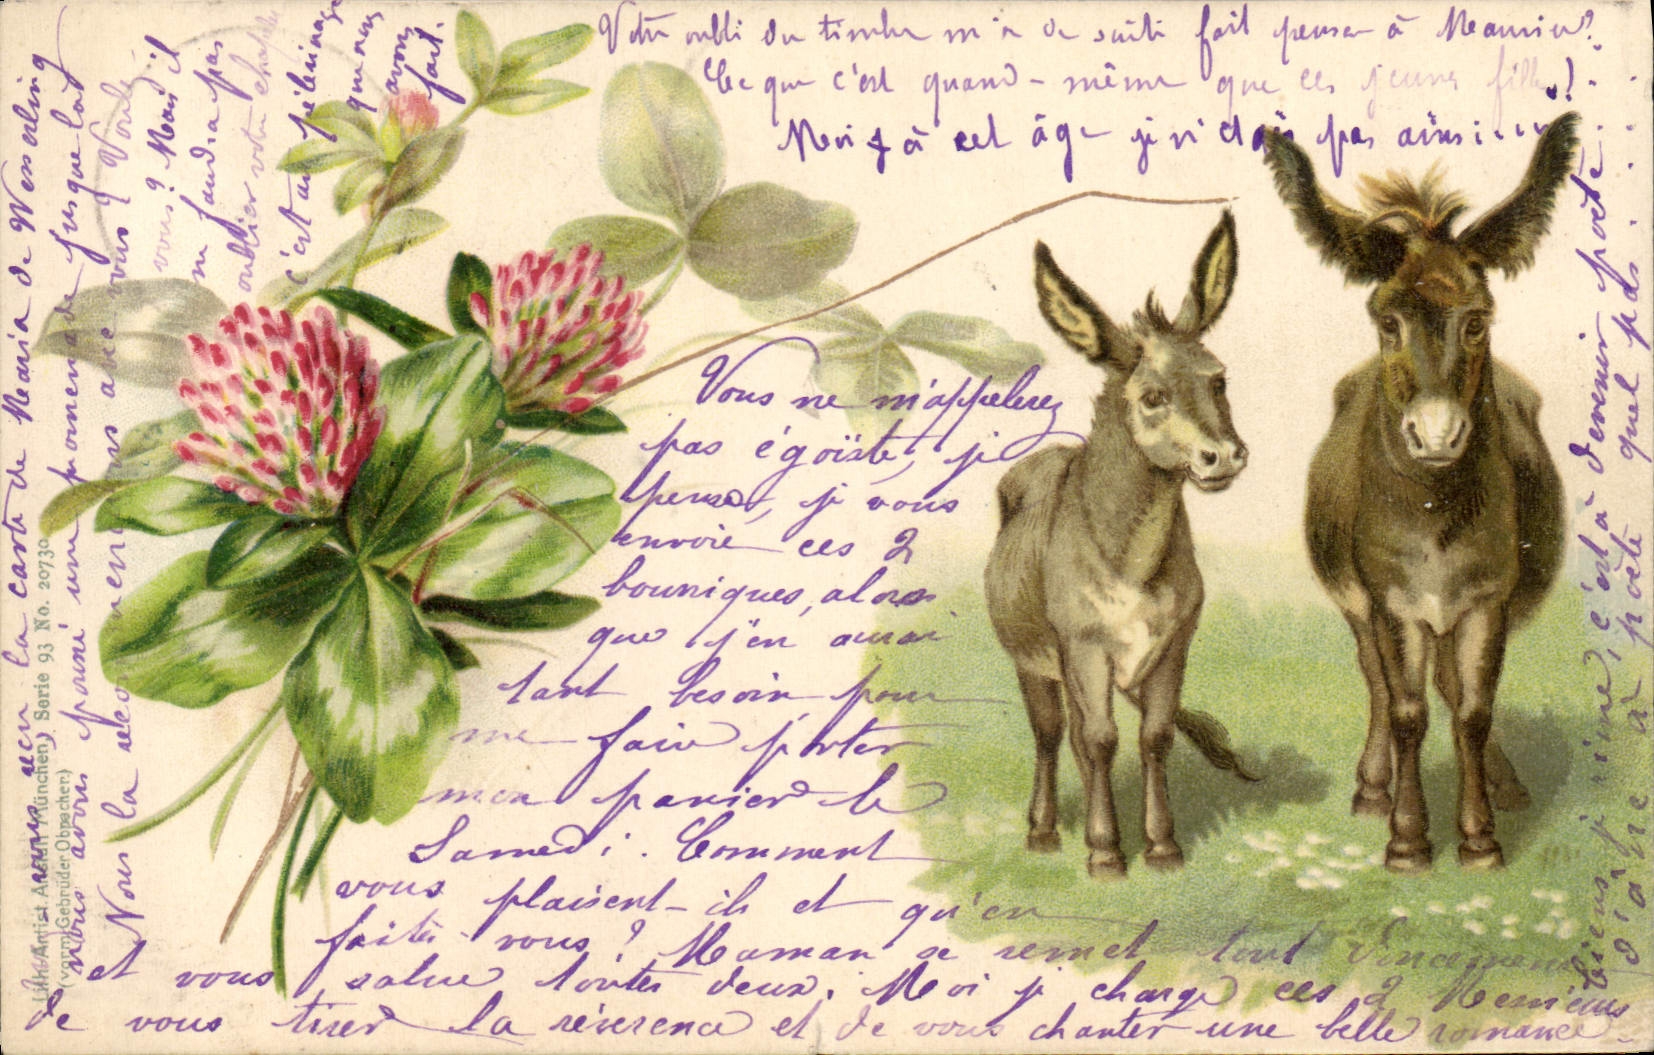 Votre oubli du timbre m'a de suite fait penser à Maurice?
Ce que c'est quand-même que ces jeunes filles!
Moi à cet âge je n'étais pas ainsi....
Vous ne m'appelerez
pas égoïste, je
pense, je vous
envoie ces 2
bourriques, alors
que j'en aurai
tant besoin pour
me faire porter
mon panier le
Samedi. Comment
vous plaisent-ils et qu'en
faites-vous? Maman se remet tout doucement
et vous salue toutes deux. Moi je charge ces 2 Messieurs
de vous tirer la révérence et de vous chanter une belle romance
tiens, je rime, c'est à devenir poète.
d'âne à poète quel pas....
Nous avons reçu la carte de Maria de Wesserling
Nous avons poussé une promenade jusque là
Nous la recommencerons avec vous, Voulez
vous? Mais il
ne faudra pas
oublier votre
c'est un pélérinage
que nous
avons
fait.
Lith.-Artist. Anstalt München) Serie 93 No. 20730
(vorm. Gebrüder Obpacher.)